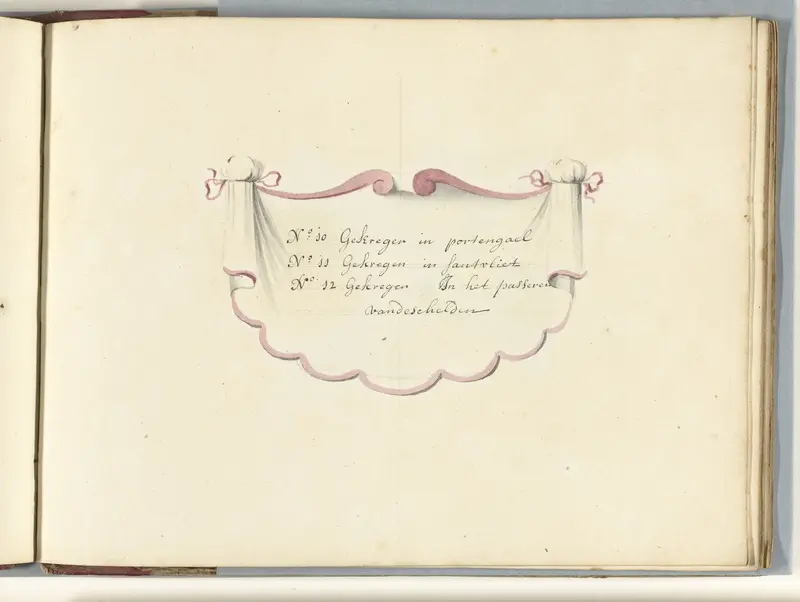 No 10 Gekreger in portengael
No 11 Gekregen in santvliet
No 12 Gekreger In het passeren
vandeschelden